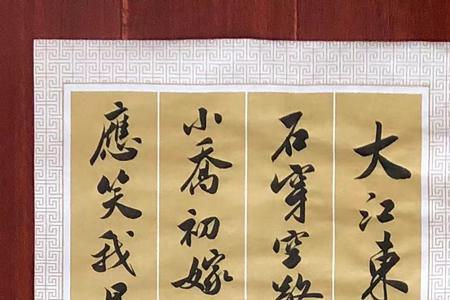 大江東
石穿空
小喬初嫁
應笑我